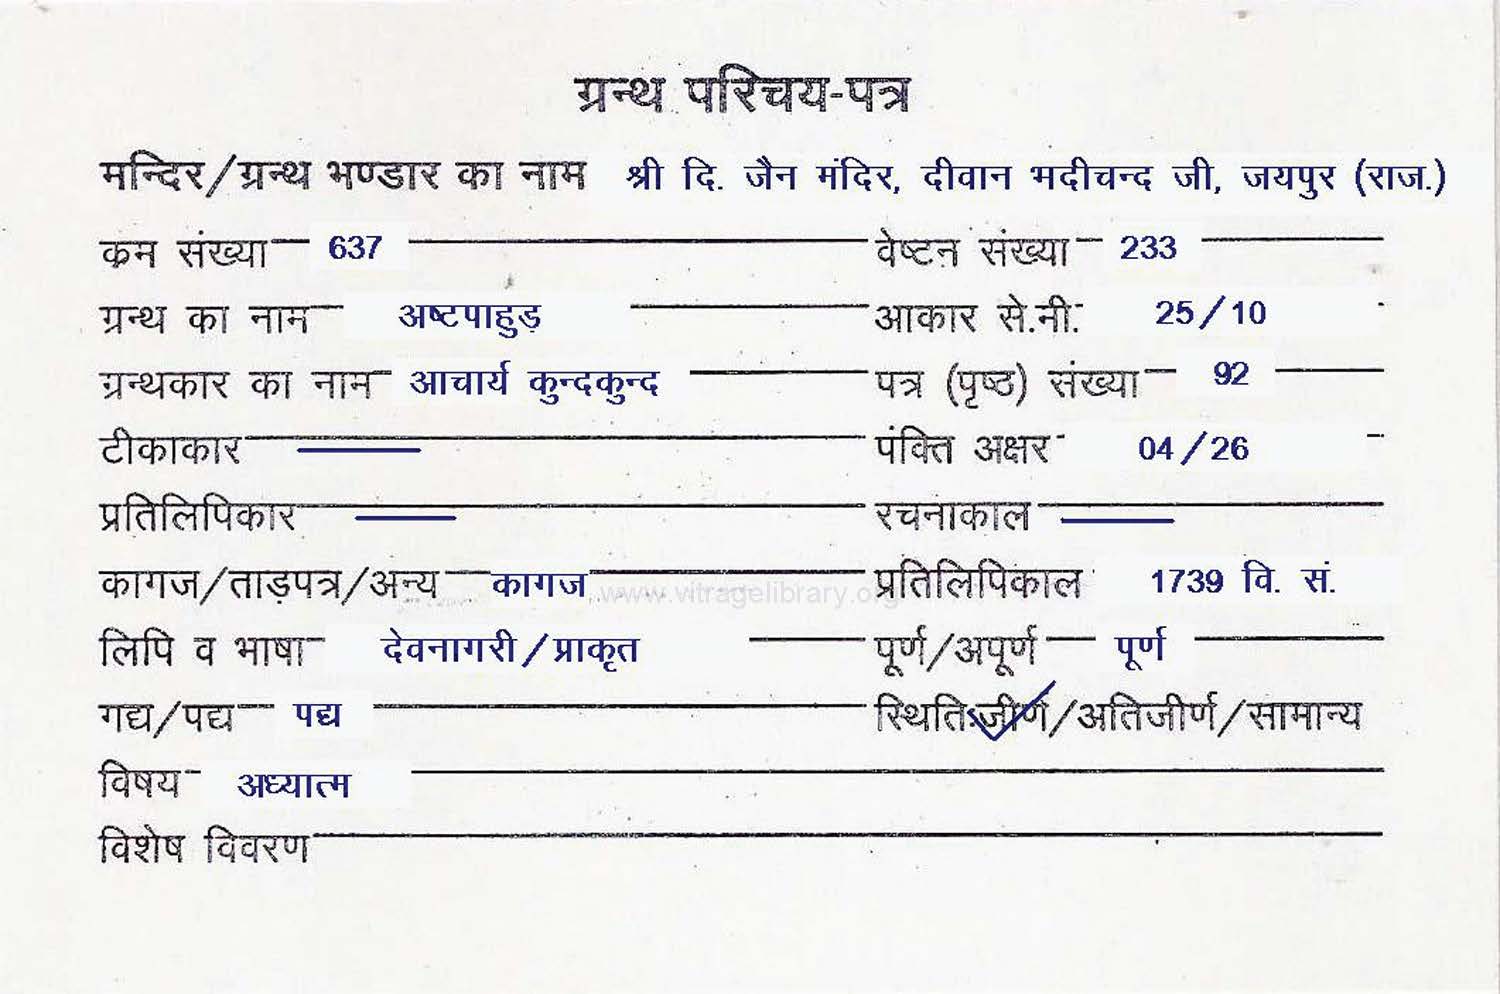 ग्रन्थ परिचय-पत्र
मन्दिर/ग्रन्थ भण्डार का नाम श्री दि. जैन मंदिर, दीवान भदीचन्द जी, जयपुर (राज.)
क्रम संख्या 637 वेष्टन संख्या 233
ग्रन्थ का नाम अष्टपाहुड़ आकार से.मी. 25/10
ग्रन्थकार का नाम आचार्य कुन्दकुन्द पत्र (पृष्ठ) संख्या 92
टीकाकार — पंक्ति अक्षर 04/26
प्रतिलिपिकार — रचनाकाल —
कागज/ताड़पत्र/अन्य कागज www.vitragelibrary.org प्रतिलिपिकाल 1739 वि. सं.
लिपि व भाषा देवनागरी/प्राकृत पूर्ण/अपूर्ण पूर्ण
गद्य/पद्य पद्य स्थिति:जीर्ण/अतिजीर्ण/सामान्य
विषय अध्यात्म
विशेष विवरण